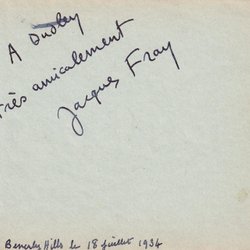 A Dudley
très amicalement
Jacques Fray
Beverly Hills le 18 juillet 1934